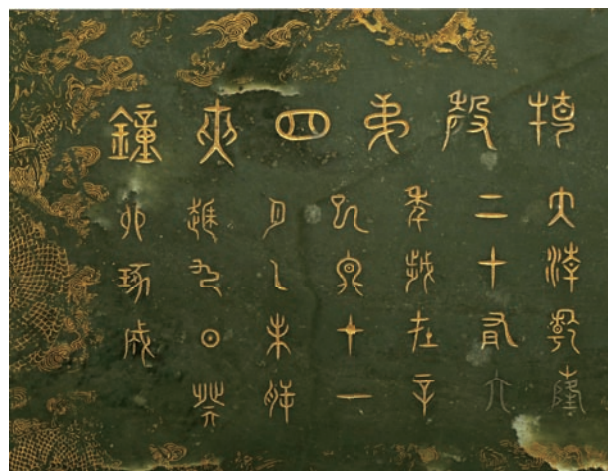 特磬弟四夾鐘
大清乾隆
二十有六
年歲在辛
巳冬十一
月乙未朔
越九日癸
卯琢成